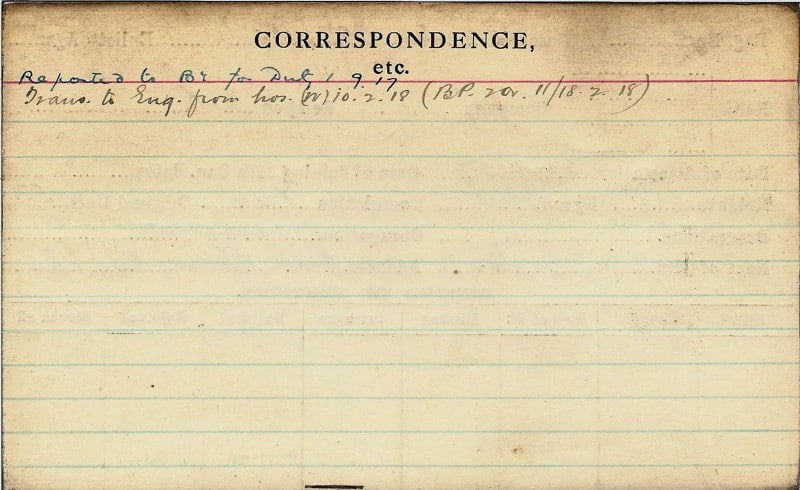 CORRESPONDENCE,
etc.
Reported to Br for Duty 1 9. 17
Trans. to Eng. from hos. (W) 10. 2. 18 (B.P. 11/18. 2. 18)